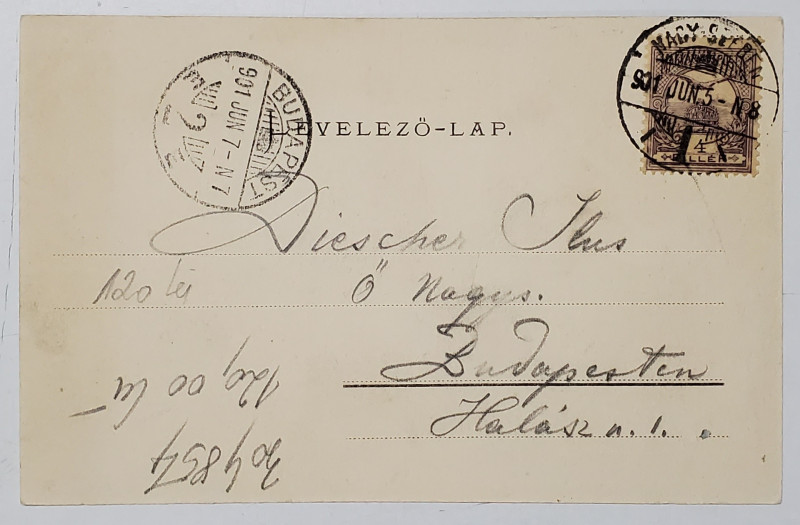 LEVELEZŐ-LAP.
BUDAPEST
901 JUN 7-N7
NAGY-SZEBEN
901 JUN. 5-N8
4
FILLÉR
Diescher Ilus
Ő Nagys.
Budapesten
Halász u. 1.
120 lei
120,00 lei
304857